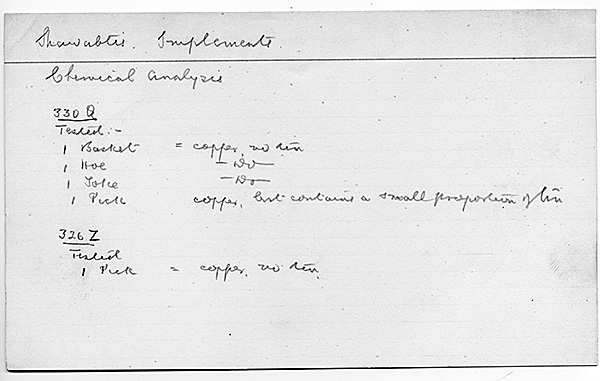 Shawabtis. Implements.
Chemical Analysis
330 Q
Tested:-
1 Basket = copper, no tin
1 Hoe — Do —
1 Yoke — Do —
1 Pick copper, but contains a small proportion of tin
326 Z
Tested
1 Pick = copper, no tin.